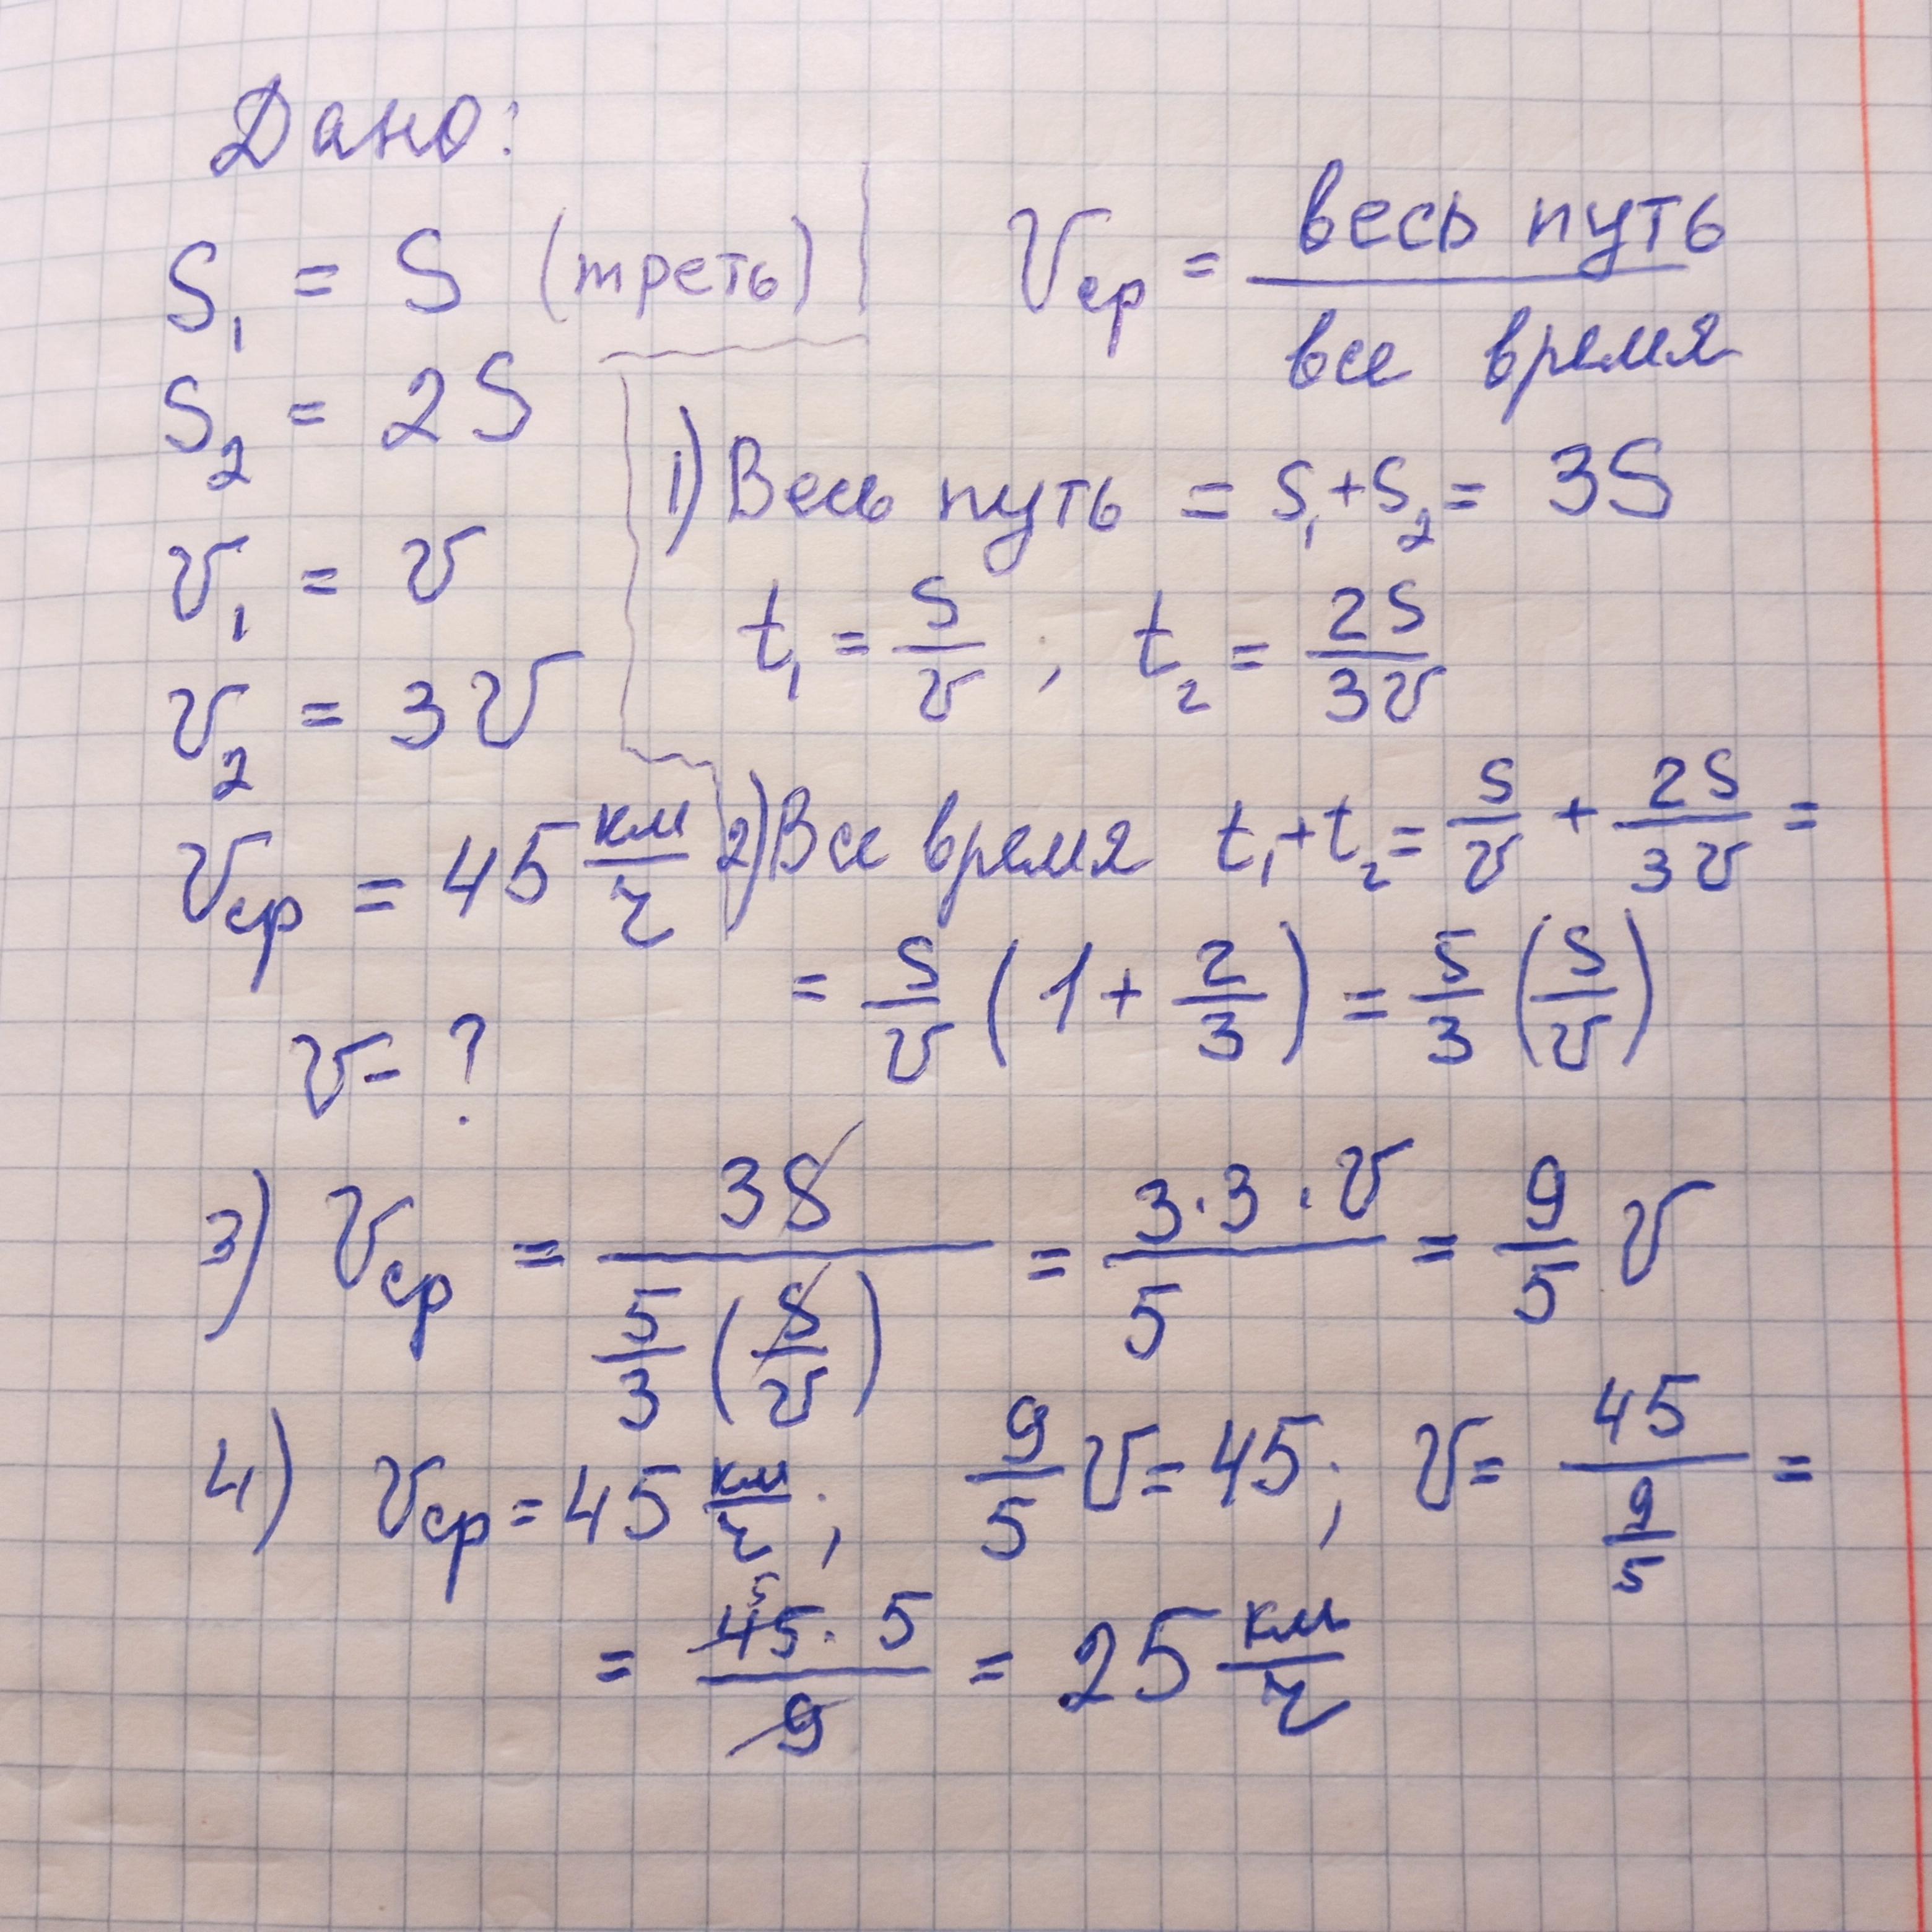 Дано:
S₁ = S (треть)
S₂ = 2S
v₁ = v
v₂ = 3v
vср = 45 км/ч
v = ?
vср = весь путь / все время
1) Весь путь = S₁ + S₂ = 3S
t₁ = S/v ; t₂ = 2S/3v
2) Все время t₁ + t₂ = S/v + 2S/3v =
= S/v (1 + 2/3) = 5/3 (S/v)
3) vср = 3S / 5/3 (S/v) = 3·3·v / 5 = 9/5 v
4) vср = 45 км/ч ; 9/5 v = 45 ; v = 45 / 9/5 =
5
= 45 · 5 / 9 = 25 км/ч